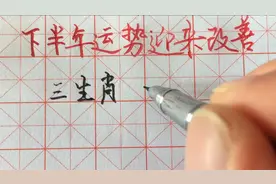 下半年运势迎来改善
三生肖